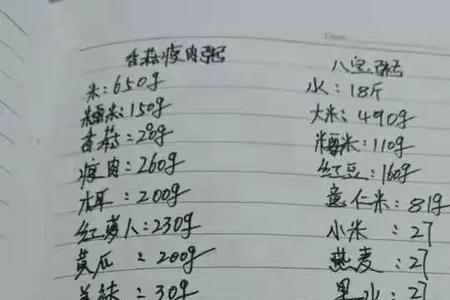 香菇瘦肉粥
米:650g
糯米:150g
香菇:20g
瘦肉:260g
木耳:200g
红萝卜:230g
黄瓜:200g
:30g
八宝粥
水:18斤
大米:490g
糯米:110g
红豆:160g
意仁米:81g
小米:27
燕麦:27
:27